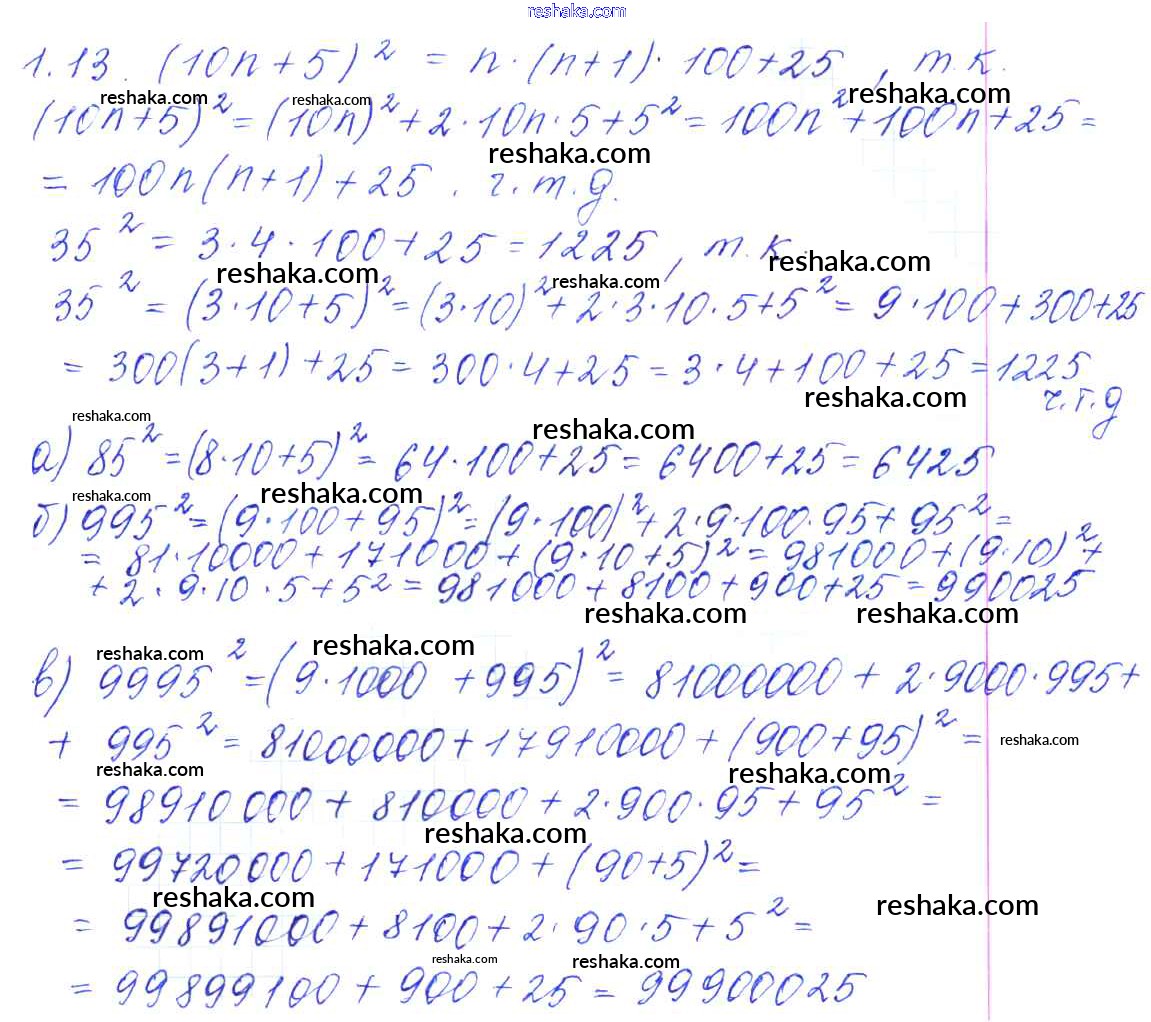 reshaka.com
1.13. (10n+5)² = n·(n+1)·100+25, т.к.
reshaka.com reshaka.com reshaka.com
(10n+5)² = (10n)² + 2·10n·5+5² = 100n² + 100n + 25 =
reshaka.com
= 100n(n+1)+25. ч.т.д.
35² = 3·4·100+25 = 1225, т.к.
reshaka.com reshaka.com reshaka.com
35² = (3·10+5)² = (3·10)² + 2·3·10·5+5² = 9·100+300+25
= 300(3+1)+25 = 300·4+25 = 3·4+100+25 = 1225
reshaka.com
ч.т.д
reshaka.com reshaka.com
а) 85² = (8·10+5)² = 64·100+25 = 6400+25 = 6425
reshaka.com reshaka.com
б) 995² = (9·100+95)² = (9·100)² + 2·9·100·95+95² =
= 81·10000+171000+(9·10+5)² = 981000+(9·10)² +
+ 2·9·10·5+5² = 981000+8100+900+25 = 990025
reshaka.com reshaka.com
reshaka.com reshaka.com
в) 9995² = (9·1000+995)² = 81000000 + 2·9000·995+
+ 995² = 81000000+17910000+(900+95)² =
reshaka.com
reshaka.com reshaka.com
= 98910000+810000+2·900·95+95² =
reshaka.com
= 99720000+171000+(90+5)² =
reshaka.com reshaka.com
= 99891000+8100+2·90·5+5² =
reshaka.com reshaka.com
= 99899100+900+25 = 99900025